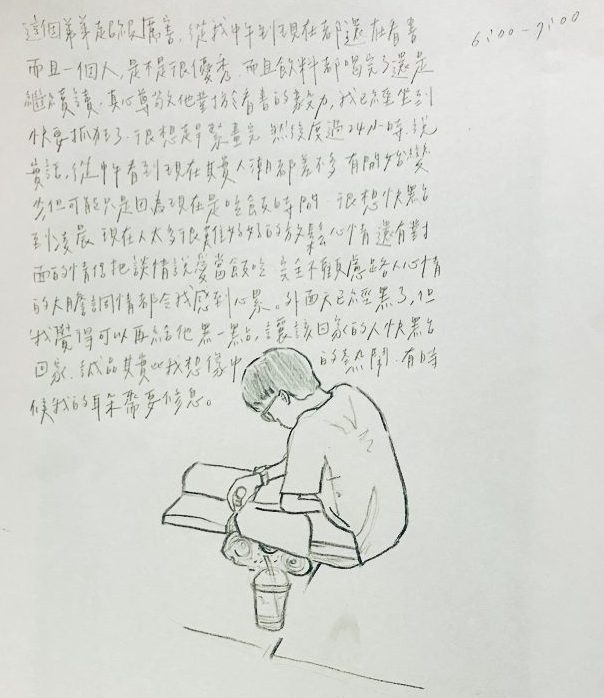 這個弟弟超級厲害,從我中午到現在都還在看書
6:00-7:00
而且一個人,是不是很優秀,而且飲料都喝完了還是
繼續讀,真心尊敬他對於看書的毅力,我已經坐到
快要抓狂了,很想趕緊畫完 然後度過24小時,說
實話,從中午看到現在其實人潮都差不多 有開始變
少但可能只是因為現在是吃飯時間,很想快點
到凌晨 現在人太多很難好好的放鬆心情 還有對
面的情侶把談情說愛當飯吃 完全不顧慮路人心情
的大膽調情都令我感到心累。外面天已經黑了,但
我覺得可以再給他黑一點,讓該回家的人快點
回家,誠品其實比我想像中的熱鬧,有時
候我的耳朵需要休息。